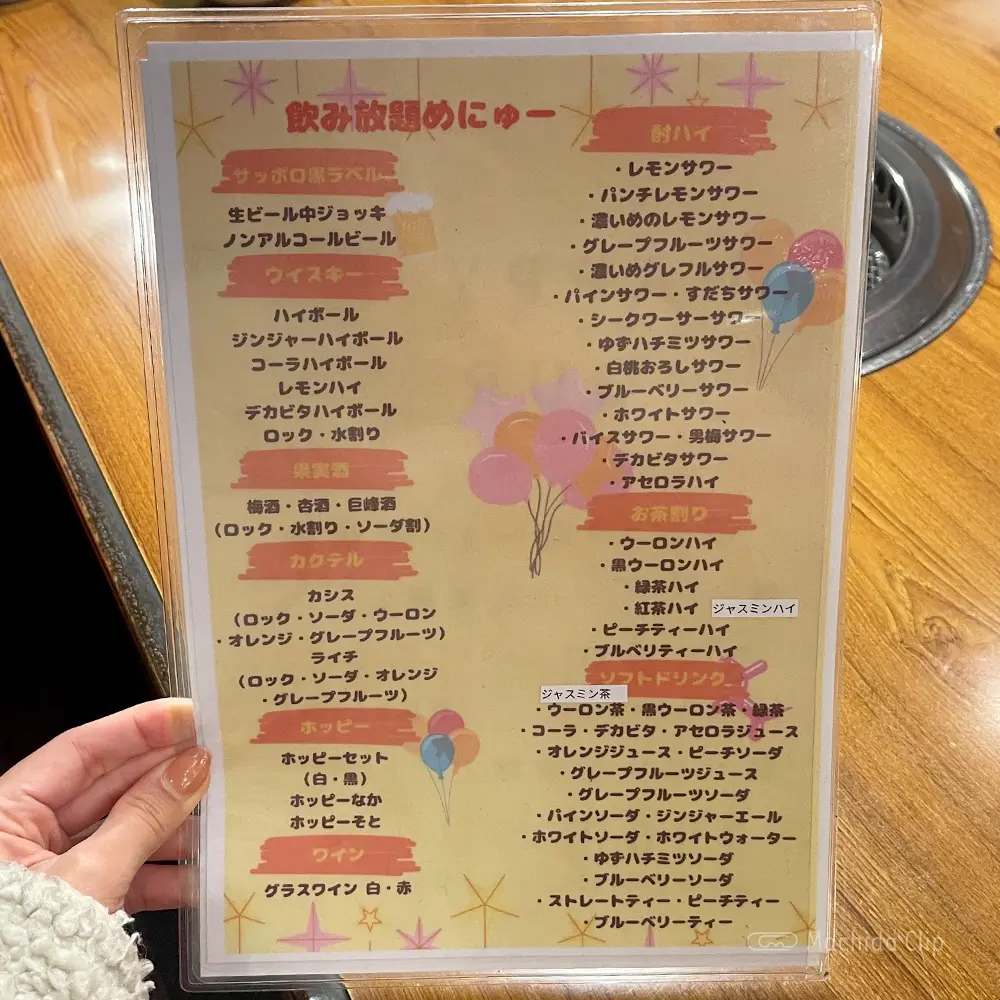 飲み放題めにゅー
サッポロ黒ラベル
生ビール中ジョッキ
ノンアルコールビール
ウイスキー
ハイボール
ジンジャーハイボール
コーラハイボール
レモンハイ
デカビタハイボール
ロック・水割り
果実酒
梅酒・杏酒・巨峰酒
（ロック・水割り・ソーダ割）
カクテル
カシス
（ロック・ソーダ・ウーロン
・オレンジ・グレープフルーツ）
ライチ
（ロック・ソーダ・オレンジ
・グレープフルーツ）
ホッピー
ホッピーセット
（白・黒）
ホッピーなか
ホッピーそと
ワイン
グラスワイン 白・赤
酎ハイ
・レモンサワー
・パンチレモンサワー
・濃いめのレモンサワー
・グレープフルーツサワー
・濃いめグレフルサワー
・パインサワー・すだちサワー
・シークワーサーサワー
・ゆずハチミツサワー
・白桃おろしサワー
・ブルーベリーサワー
・ホワイトサワー
・バイスサワー・男梅サワー
・デカビタサワー
・アセロラハイ
お茶割り
・ウーロンハイ
・黒ウーロンハイ
・緑茶ハイ
・紅茶ハイ ジャスミンハイ
・ピーチティーハイ
・ブルベリティーハイ
ソフトドリンク
ジャスミン茶
・ウーロン茶・黒ウーロン茶・緑茶
・コーラ・デカビタ・アセロラジュース
・オレンジジュース・ピーチソーダ
・グレープフルーツジュース
・グレープフルーツソーダ
・パインソーダ・ジンジャーエール
・ホワイトソーダ・ホワイトウォーター
・ゆずハチミツソーダ
・ブルーベリーソーダ
・ストレートティー・ピーチティー
・ブルーベリーティー
Machida Clip